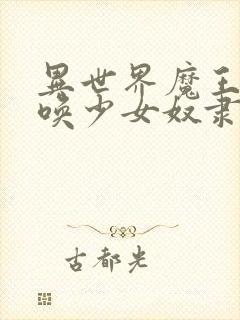 異世界魔王
喚少女奴隶
古都光